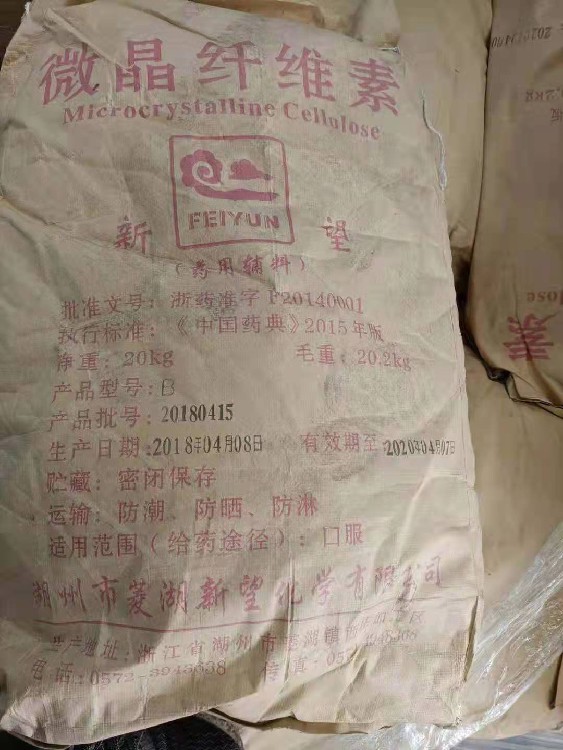 微晶纤维素
Microcrystalline Cellulose
FEIYUN
新 望
(药用辅料)
批准文号: 浙药准字 F20140001
执行标准: 《中国药典》2015年版
净重: 20kg 毛重: 20.2kg
产品型号: B
产品批号: 20180415
生产日期: 2018年04月08日 有效期至 2020年04月07日
贮藏: 密闭保存
运输: 防潮、防晒、防淋
适用范围(给药途径): 口服
湖州市菱湖新望化学有限公司
生产地址: 浙江省湖州市菱湖镇
电话: 0572-3945638 传真: